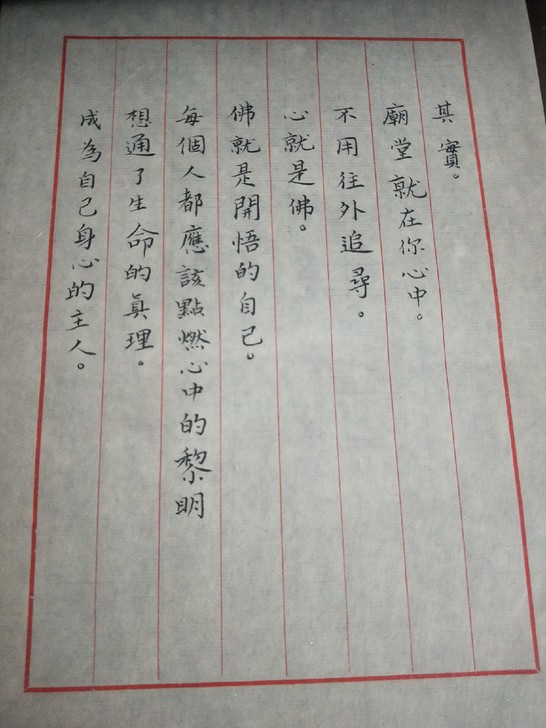 其實。
廟堂就在你心中。
不用往外追尋。
心就是佛。
佛就是開悟的自己。
每個人都應該點燃心中的黎明
想通了生命的真理。
成為自己身心的主人。